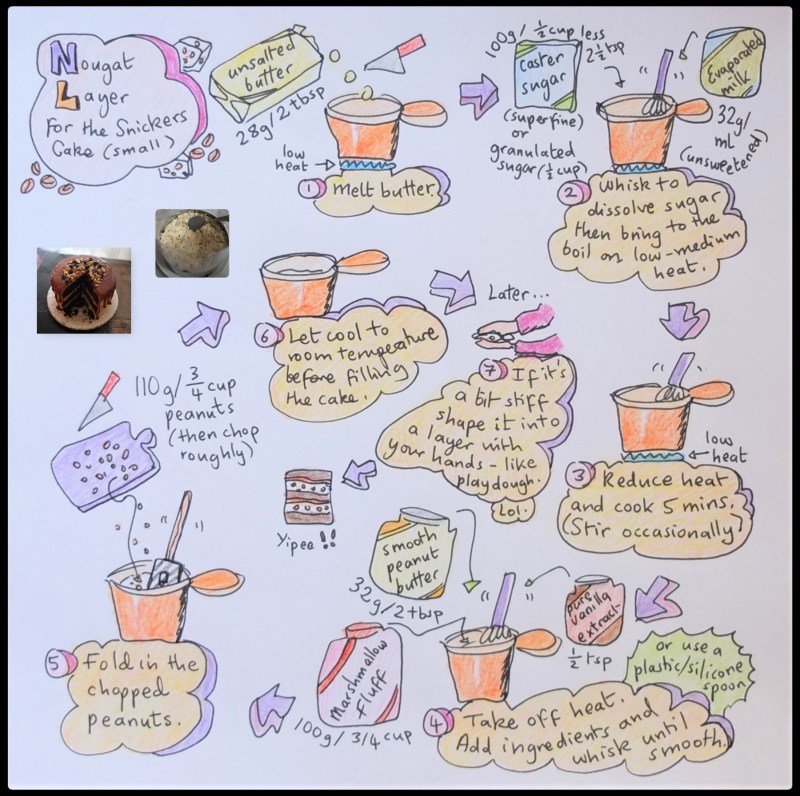 Nougat
Layer
For the Snickers
Cake (small)
unsalted
butter
28g/2 tbsp
low
heat
1 Melt butter.
100g/ ½ cup less
2½ tsp
caster
sugar
(superfine)
or
granulated
sugar (½ cup)
Evaporated
milk
32g/
mL
(unsweetened)
2 Whisk to
dissolve sugar
then bring to the
boil on low-medium
heat.
low
heat
3 Reduce heat
and cook 5 mins.
(Stir occasionally)
smooth
peanut
butter
32g/2 tbsp
pure
vanilla
extract
½ tsp
Marshmallow
Fluff
100g/ 3/4 cup
or use a
plastic/silicone
spoon
4 Take off heat.
Add ingredients and
whisk until
smooth.
110g/ ¾ cup
peanuts
(then chop
roughly)
5 Fold in the
chopped
peanuts.
6 Let cool to
room temperature
before filling
the cake.
Later...
7 If it's
a bit stiff
shape it into
a layer with
your hands - like
playdough.
Lol.
Yipee !!